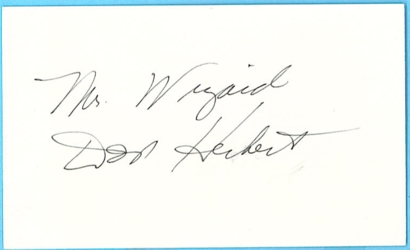 Mr. Wizard
Don Herbert